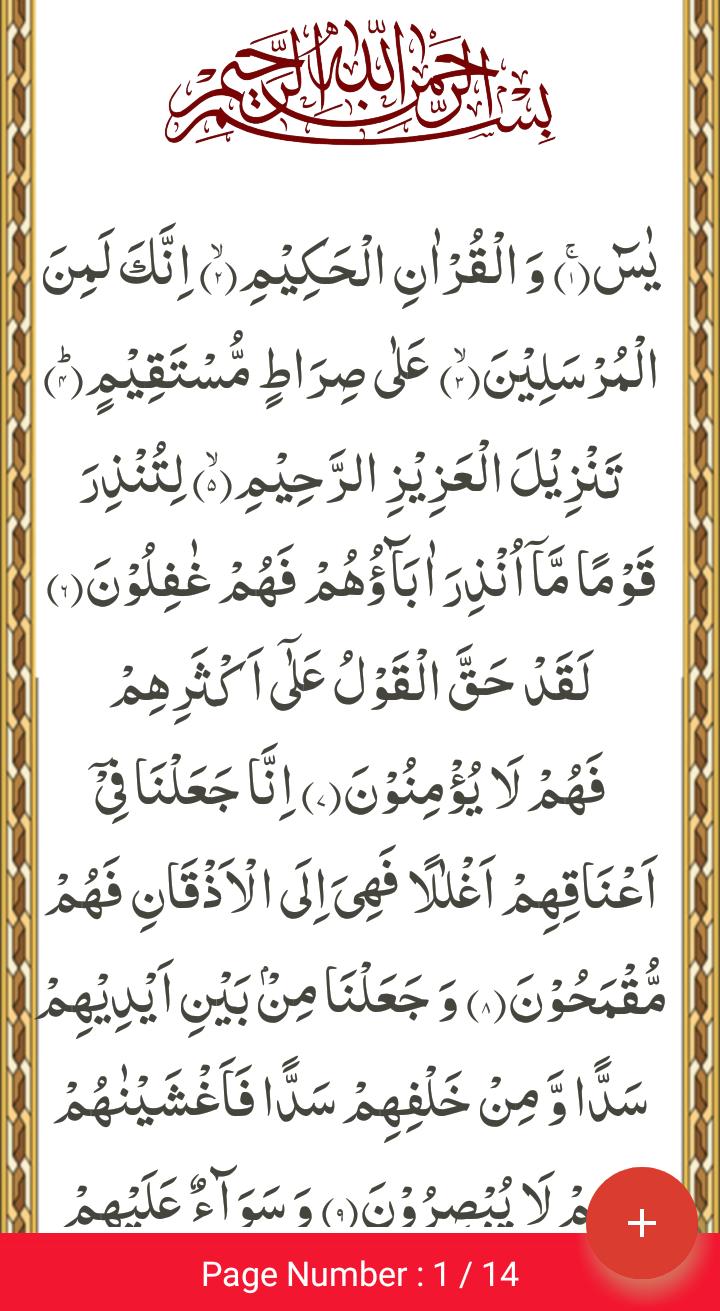 بسم الله الرحمن الرحيم
يٰسٓ(۱)ۚ وَ الْقُرْاٰنِ الْحَكِیْمِ(۲)ۙ اِنَّكَ لَمِنَ
الْمُرْسَلِیْنَ(۳)ۙ عَلٰى صِرَاطٍ مُّسْتَقِیْمٍ(۴)ؕ
تَنْزِیْلَ الْعَزِیْزِ الرَّحِیْمِ(۵)ۙ لِتُنْذِرَ
قَوْمًا مَّاۤ اُنْذِرَ اٰبَآؤُهُمْ فَهُمْ غٰفِلُوْنَ(۶)
لَقَدْ حَقَّ الْقَوْلُ عَلٰۤى اَكْثَرِهِمْ
فَهُمْ لَا یُؤْمِنُوْنَ(۷) اِنَّا جَعَلْنَا فِیْۤ
اَعْنَاقِهِمْ اَغْلٰلًا فَهِیَ اِلَى الْاَذْقَانِ فَهُمْ
مُّقْمَحُوْنَ(۸) وَ جَعَلْنَا مِنْۢ بَیْنِ اَیْدِیْهِمْ
سَدًّا وَّ مِنْ خَلْفِهِمْ سَدًّا فَاَغْشَیْنٰهُمْ
لَا یُبْصِرُوْنَ(۹) وَ سَوَآءٌ عَلَیْهِمْ
Page Number : 1 / 14